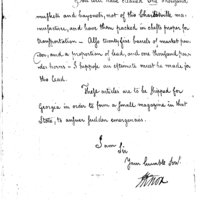 muskets and bayonets, not of the Charleville ma-
nufacture, and have them packed in chests proper for
transportation – Also twenty five barrels of musket pow-
der, and a proportion of lead, and one thousand pow-
der horns – I suppose an estimate must be made for
this lead.
These articles are to be shipped for
Georgia in order to form a small magazine in that
State, to answer sudden emergencies.
I am Sir
Your humble Serv.
H Knox